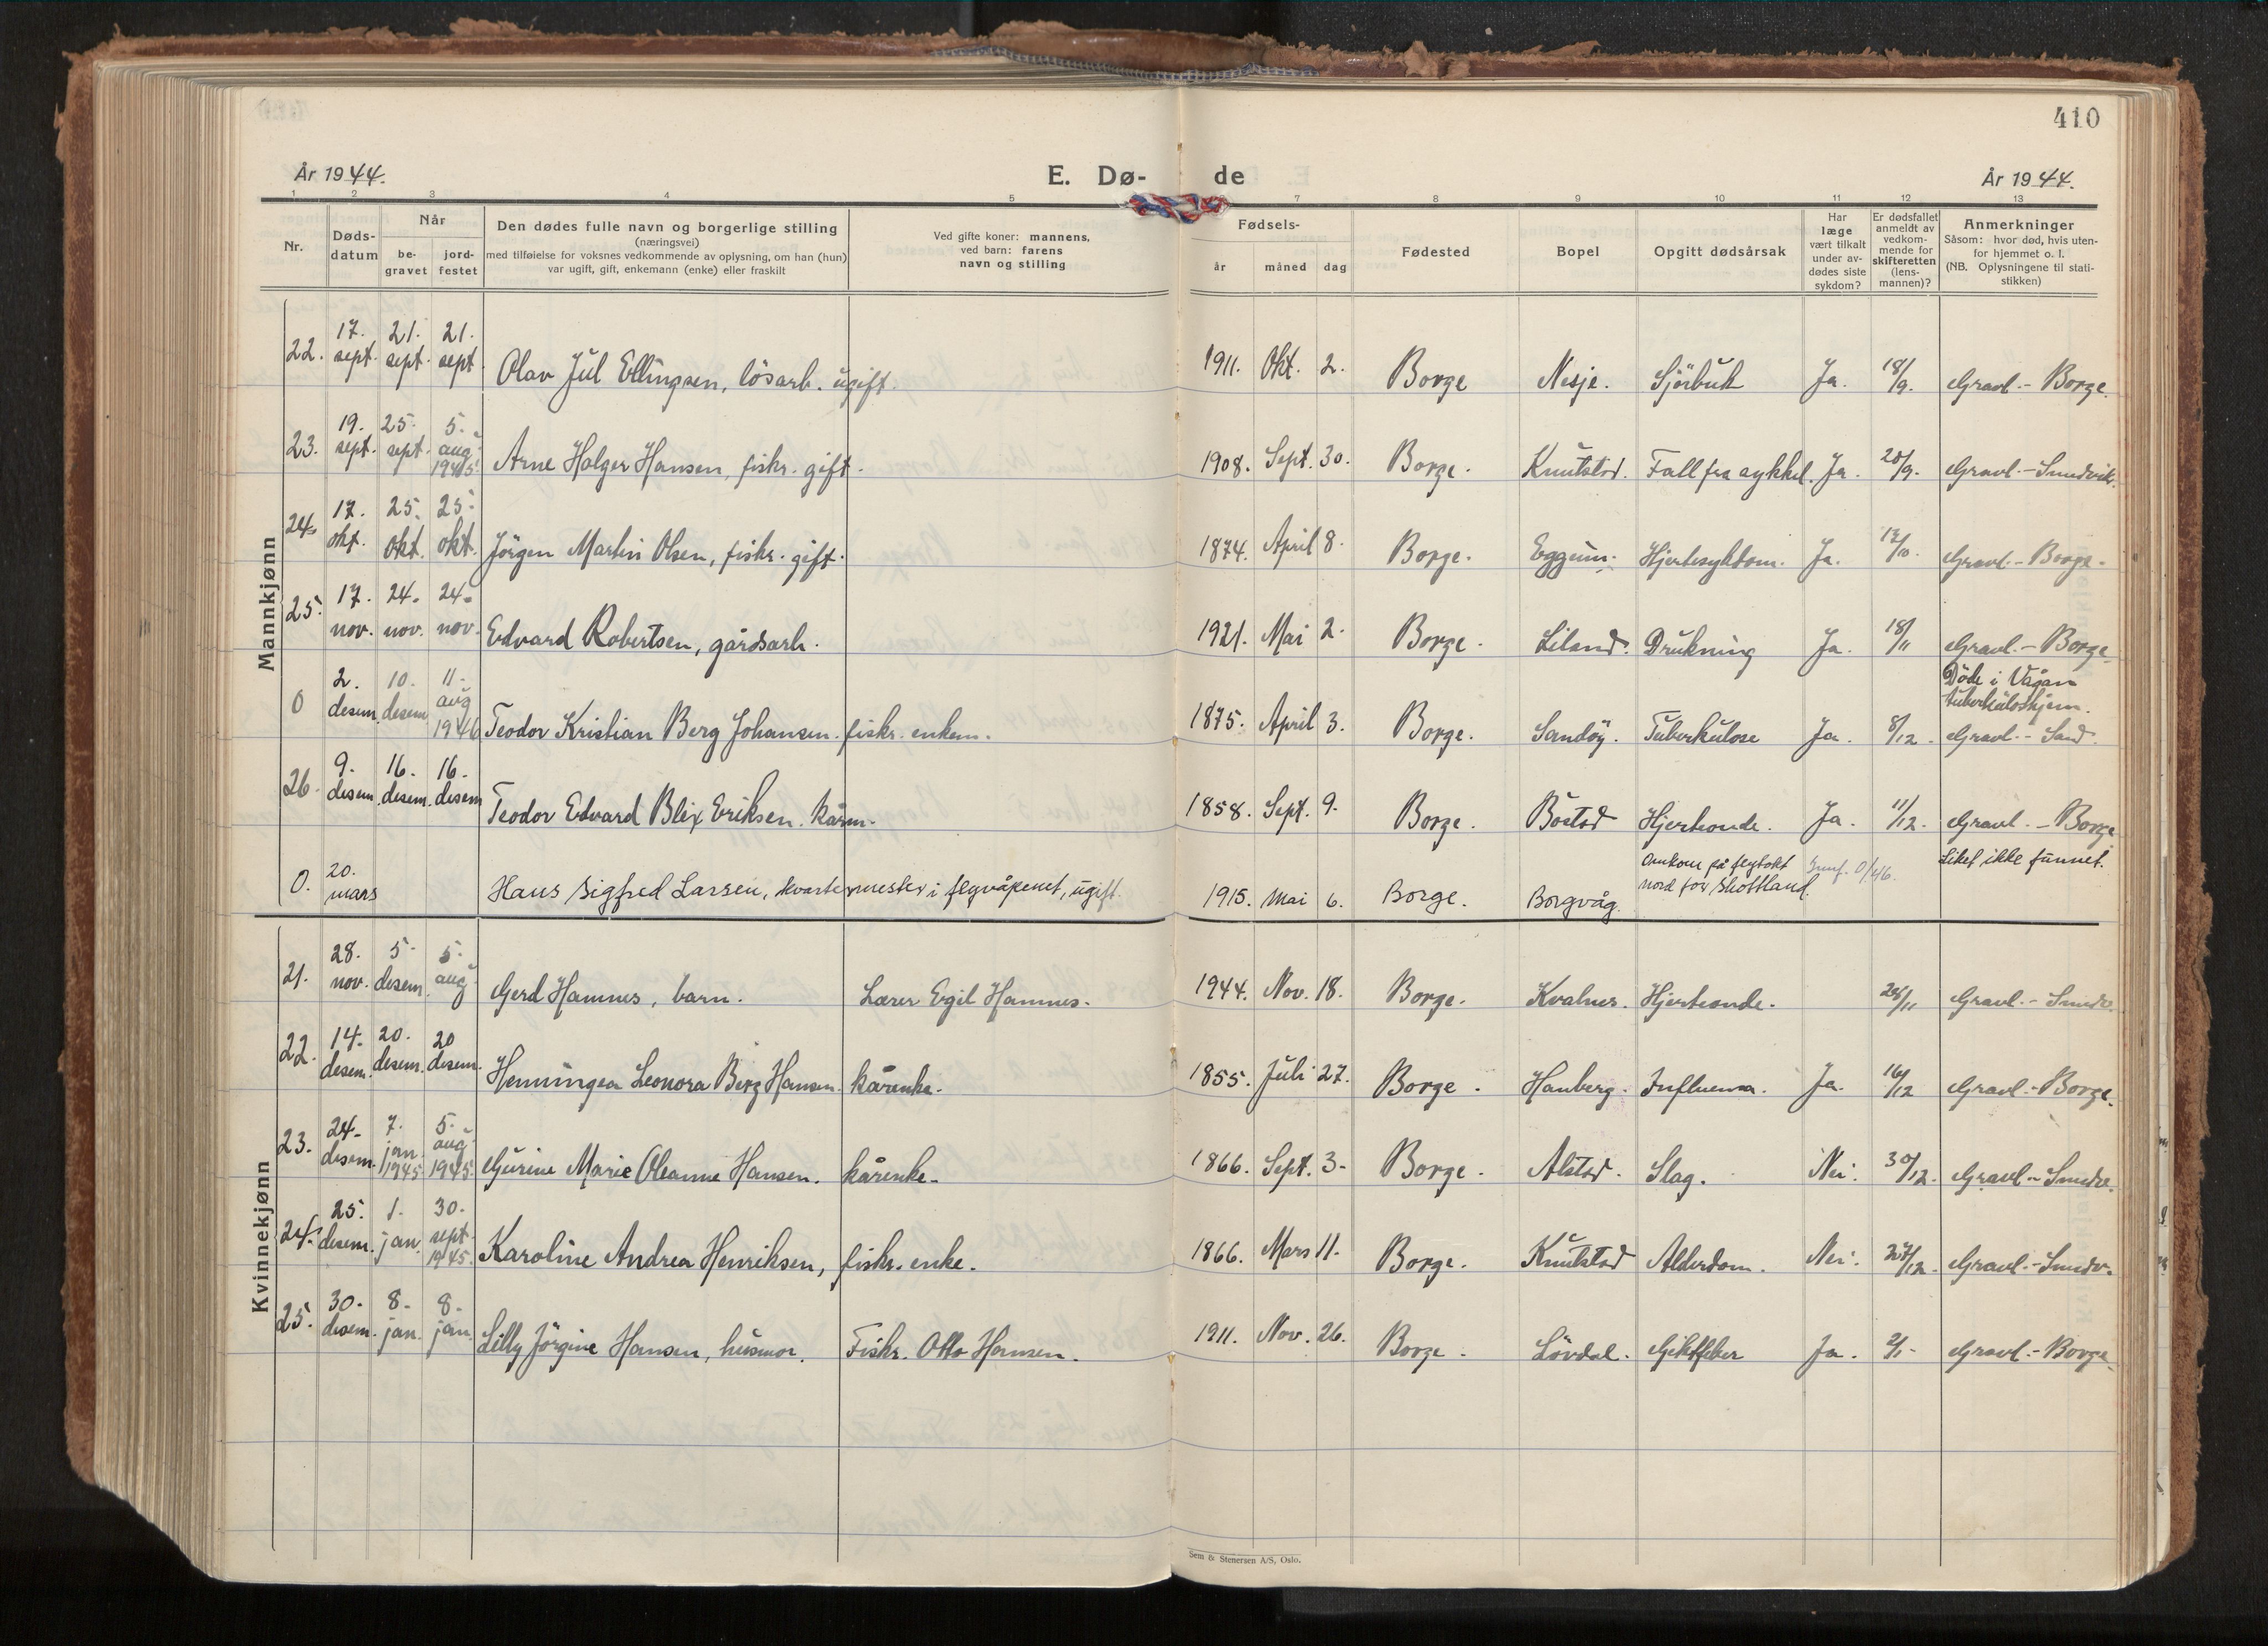 410
År 1944.
E. Dø- de
År 1944.
1 2 3 4 5 7 8 9 10 11 12 13
Nr.
Døds-
datum
Når
be-
gravet
jord-
festet
Den dødes fulle navn og borgerlige stilling
(næringsvei)
med tilføielse for voksnes vedkommende av oplysning, om han (hun)
var ugift, gift, enkemann (enke) eller fraskilt
Ved gifte koner: mannens,
ved barn: farens
navn og stilling
Fødsels-
år måned dag
Fødested
Bopel
Opgitt dødsårsak
Har
læge
vært tilkalt
under av-
dødes siste
sykdom?
Er dødsfallet
anmeldt av
vedkom-
mende for
skifteretten
(lens-
mannen)?
Anmerkninger
Såsom: hvor død, hvis uten-
for hjemmet o. l.
(NB. Oplysningene til stati-
stikken)
Mannkjønn
22. 17. sept. 21. sept. 21. sept. Olav Jul Ellingsen, lösarb. ugift. 1911. Okt. 2. Borge Nesje. Sjörbuk Ja. 18/9. Gravl. - Borge.
23. 19. sept. 25. sept. 5. aug. 1945. Arne Holger Hansen, fiskr. gift. 1908. Sept. 30. Borge. Knutstad. Fall fra sykkel. Ja. 20/9. Gravl. - Sundvik.
24. 17. okt. 25. okt. 25. okt. Jörgen Martin Olsen, fiskr. gift. 1874. April 8. Borge. Eggum. Hjertesykdom. Ja. 17/10. Gravl. - Borge.
25. 17. nov. 24. nov. 24. nov. Edvard Robertsen, gårdsarb. 1921. Mai 2. Borge. Liland. Drukning Ja. 18/11 Gravl. - Borge.
0 2. desem. 10. desem. 11. aug 1946 Teodor Kristian Berg Johansen. fiskr. enkem. 1875. April 3. Borge. Sandöy. Tuberkulose Ja. 8/12. Döde i Vågan tuberkuloshjem. Gravl. - Sand.
26. 9. desem. 16. desem. 16. desem Teodor Edvard Blix Eriksen. kårm. 1858. Sept. 9. Borge. Böstad Hjerteonde. Ja. 11/12. Gravl. - Borge
0. 20. mars Hans Sigfred Larsen, kvartermester i flyvåpenet, ugift. 1915. Mai 6. Borge. Borgvåg. Omkom på flytokt nord for Skottland. Jnnf. 0/46. Liket ikke funnet.
Kvinnekjønn
21. 28. nov. 5. desem. 5. aug Gerd Hamnes, barn. Lærer Egil Hamnes. 1944. Nov. 18. Borge. Kvalnes. Hjerteonde. 28/11 Gravl. -
22. 14. desem. 20. desem. 20 desem. Henningea Leonora Berg Hansen. kårenke. 1855. Juli 27. Borge. Hauberg. Influensa. Ja. 16/12 Gravl. - Borge.
23. 24. desem. 7. jan. 1945 5. aug. 1945 Gurine Marie Oleanne Hansen. kårenke. 1866. Sept. 3. Borge. Alstad. Slag. Nei. 30/12. Gravl. -
24. 25. desem. 1. jan. 30. sept. 1945. Karoline Andrea Henriksen, fiskr. enke. 1866. Mars 11. Borge. Knutstad Alderdom. Nei. 27/12. Gravl. -
25. 30. desem. 8. jan. 8. jan. Lilly Jörgine Hansen, husmor. Fiskr. Otto Hansen. 1911. Nov. 26. Borge. Lövdal. Giktfeber Ja. 2/1. Gravl. - Borge.
Sem & Stenersen A/S, Oslo.